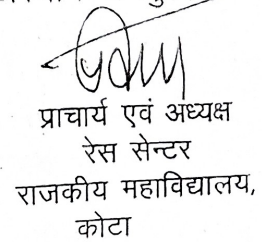 प्राचार्य एवं अध्यक्ष
रेस सेन्टर
राजकीय महाविद्यालय,
कोटा